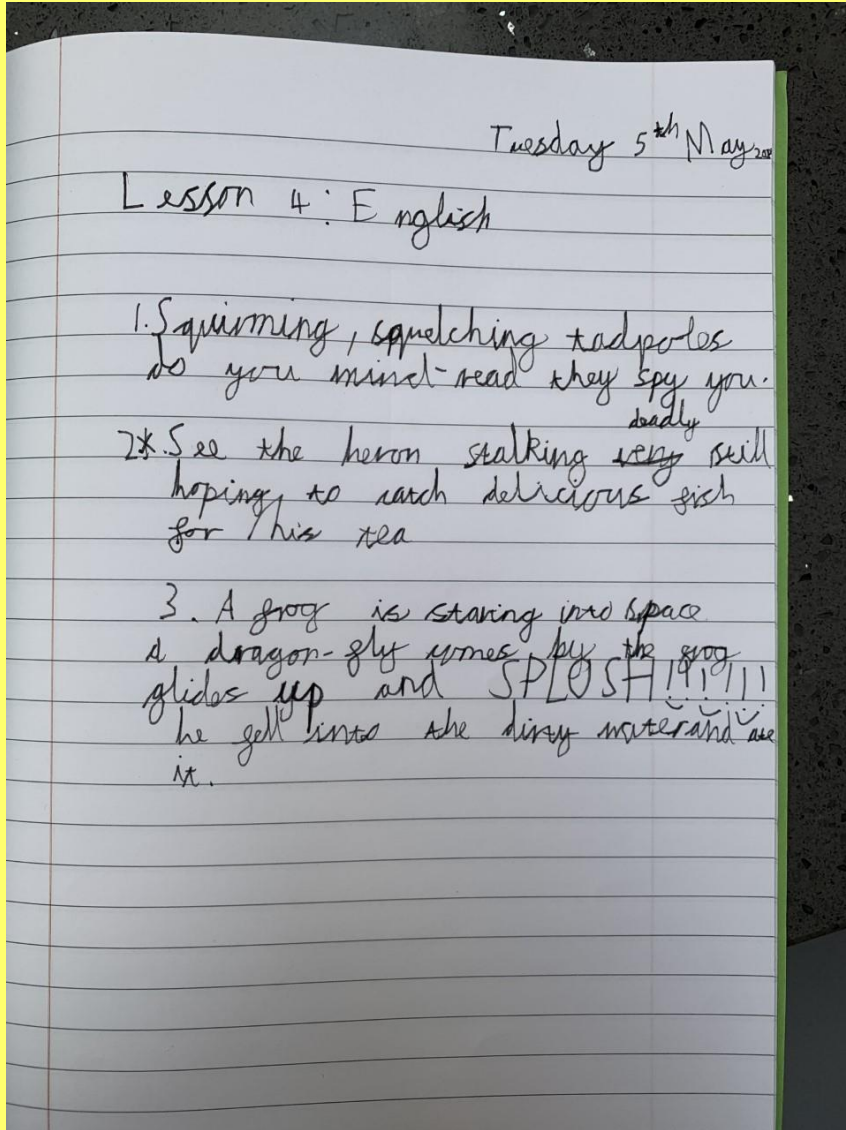 Tuesday 5th May
Lesson 4: English
1. Squirming, squelching tadpoles
do you mind-read they spy you.
deadly
2*. See the heron stalking very still
hoping to catch delicious fish
for his tea
3. A frog is staring into space
a dragon-fly comes by the frog
glides up and SPLOSH!!!!!!
he fell into the dirty water and ate
it.